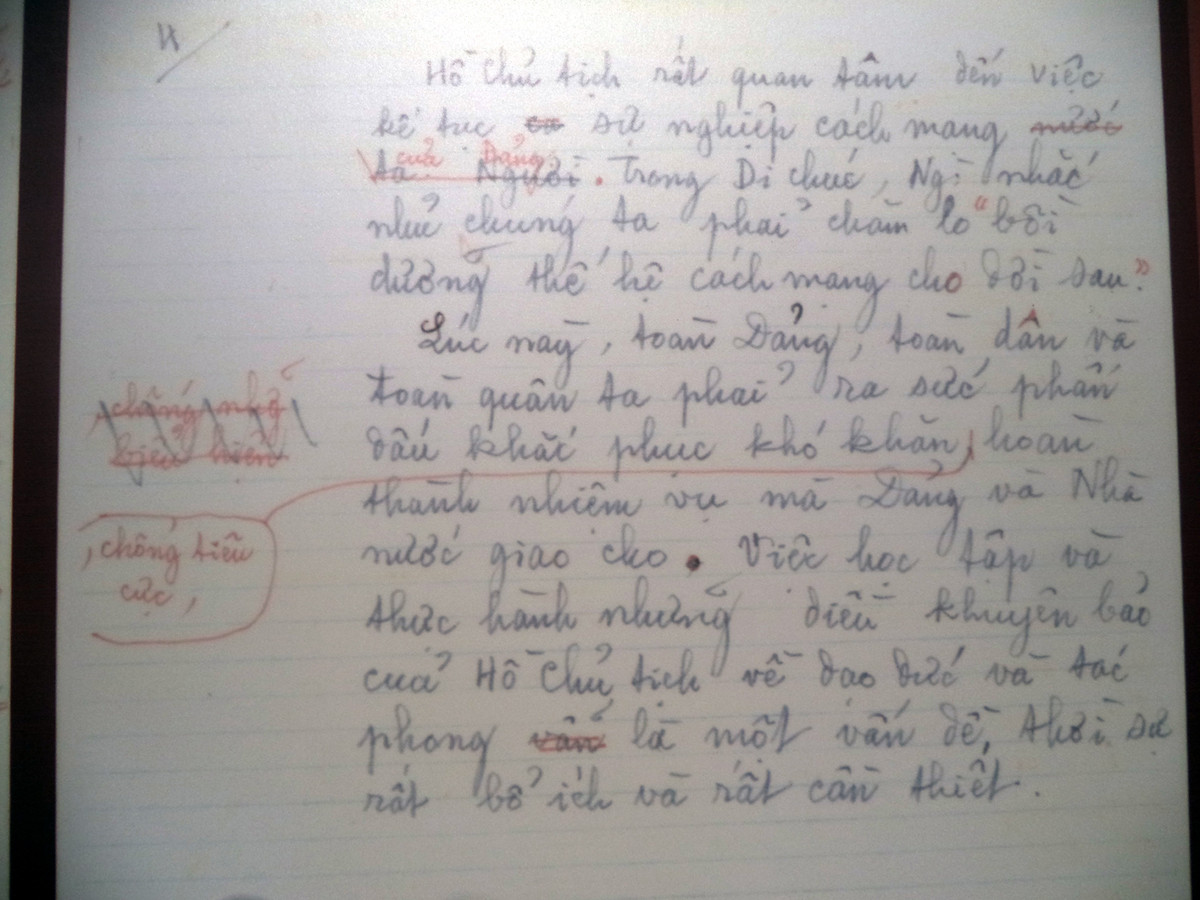 4
Hồ Chủ tịch rất quan tâm đến việc
kế tục sự nghiệp cách mạng nước
của Đảng
ta Người. Trong Di chúc, Ng: nhắc
nhở chúng ta phải chăm lo "bồi
dưỡng thế hệ cách mạng cho đời sau".
Lúc này, toàn Đảng, toàn dân và
toàn quân ta phải ra sức phấn
chống những
biểu hiện
đấu khắc phục khó khăn, hoàn
thành nhiệm vụ mà Đảng và Nhà
, chống tiêu
cực,
nước giao cho. Việc học tập và
thực hành những điều khuyên bảo
của Hồ Chủ tịch về đạo đức và tác
phong vẫn là một vấn đề, thời sự
rất bổ ích và rất cần thiết.